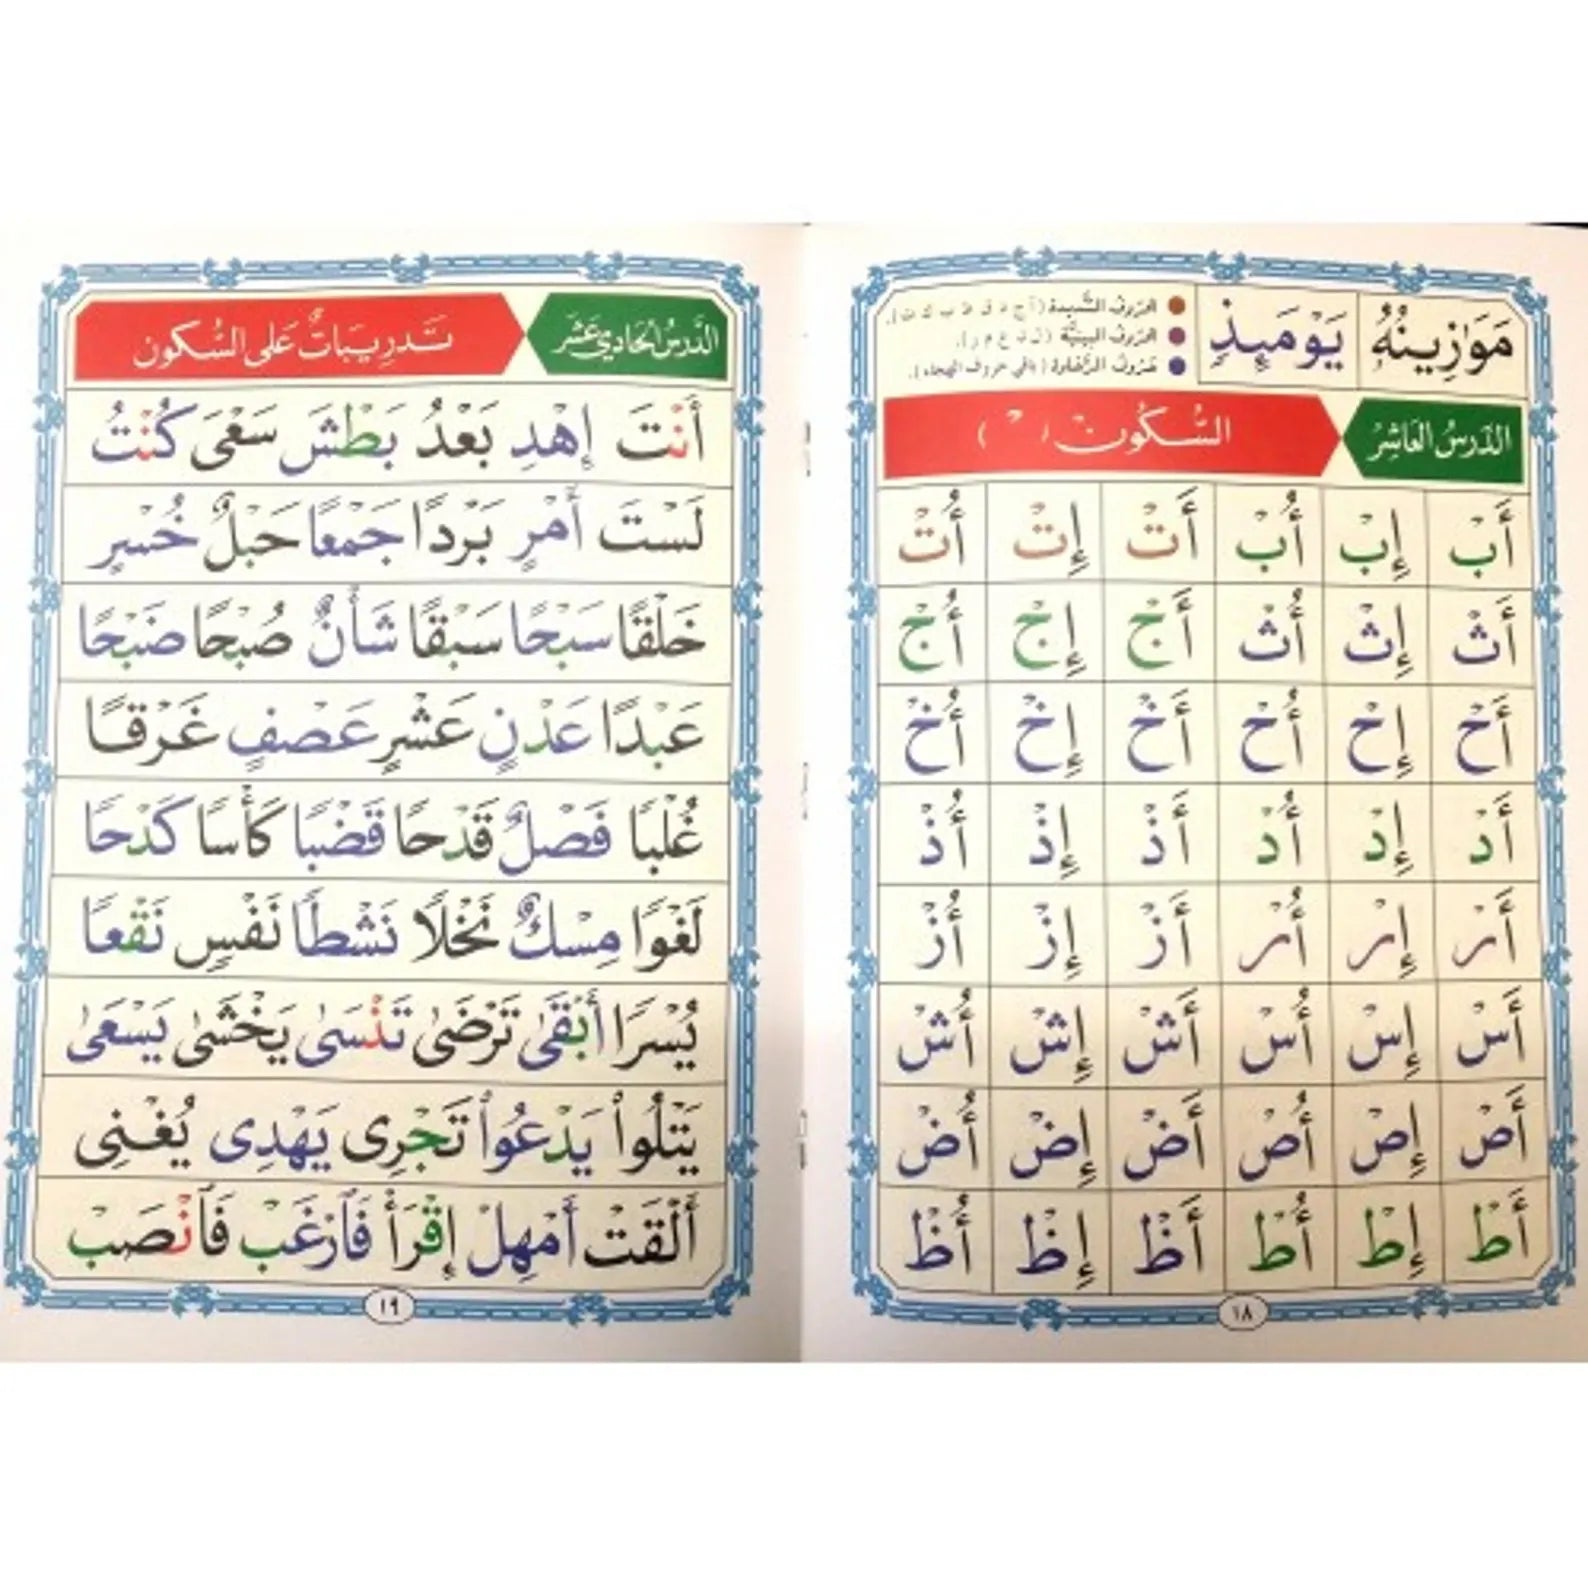 مَوَٰزِينُهُۥ يَوْمَئِذٍ
الحروف الشديدة (أ ج د ق ط ب ك ت).
الحروف البينيَّة (ل ن ع م ر).
حروف الرَّخاوة (باقي حروف الهجاء).
الدَّرسُ العَاشِرُ السُّكُونْ ( ْ )
أَبْ إِبْ أُبْ أَتْ إِتْ أُتْ
أَثْ إِثْ أُثْ أَجْ إِجْ أُجْ
أَحْ إِحْ أُحْ أَخْ إِخْ أُخْ
أَدْ إِدْ أُدْ أَذْ إِذْ أُذْ
أَرْ إِرْ أُرْ أَزْ إِزْ أُزْ
أَسْ إِسْ أُسْ أَشْ إِشْ أُشْ
أَصْ إِصْ أُصْ أَضْ إِضْ أُضْ
أَطْ إِطْ أُطْ أَظْ إِظْ أُظْ
١٨
الدَّرسُ الحَادِي عَشَر تَدرِيبَاتٌ عَلى السُّكون
أَنْتَ إِهْدِ بَعْدُ بَطْشَ سَعْىَ كُنْتُ
لَسْتَ أَمْرٍ بَرْدًا جَمْعًا حَبْلٌ خُسْرٍ
خَلْقًا سَبْحًا سَبْقًا شَأْنٌ صُبْحًا ضَبْحًا
عَبْدًا عَدْنٍ عَشْرٍ عَصْفٍ غَرْقًا
غُلْبًا فَصْلٌ قَدْحًا قَضْبًا كَأْسًا كَدْحًا
لَغْوًا مِسْكٌ نَخْلًا نَشْطًا نَفْسٍ نَقْعًا
يُسْرًا أَبْقَىٰ تَرْضَىٰ تَنْسَىٰ يَخْشَىٰ يَسْعَىٰ
يَتْلُوا۟ يَدْعُوا۟ تَجْرِى يَهْدِى يُغْنِى
أَلْقَتْ أَمْهِلْ إِقْرَأْ فَٱرْغَبْ فَٱنْصَبْ
١٩